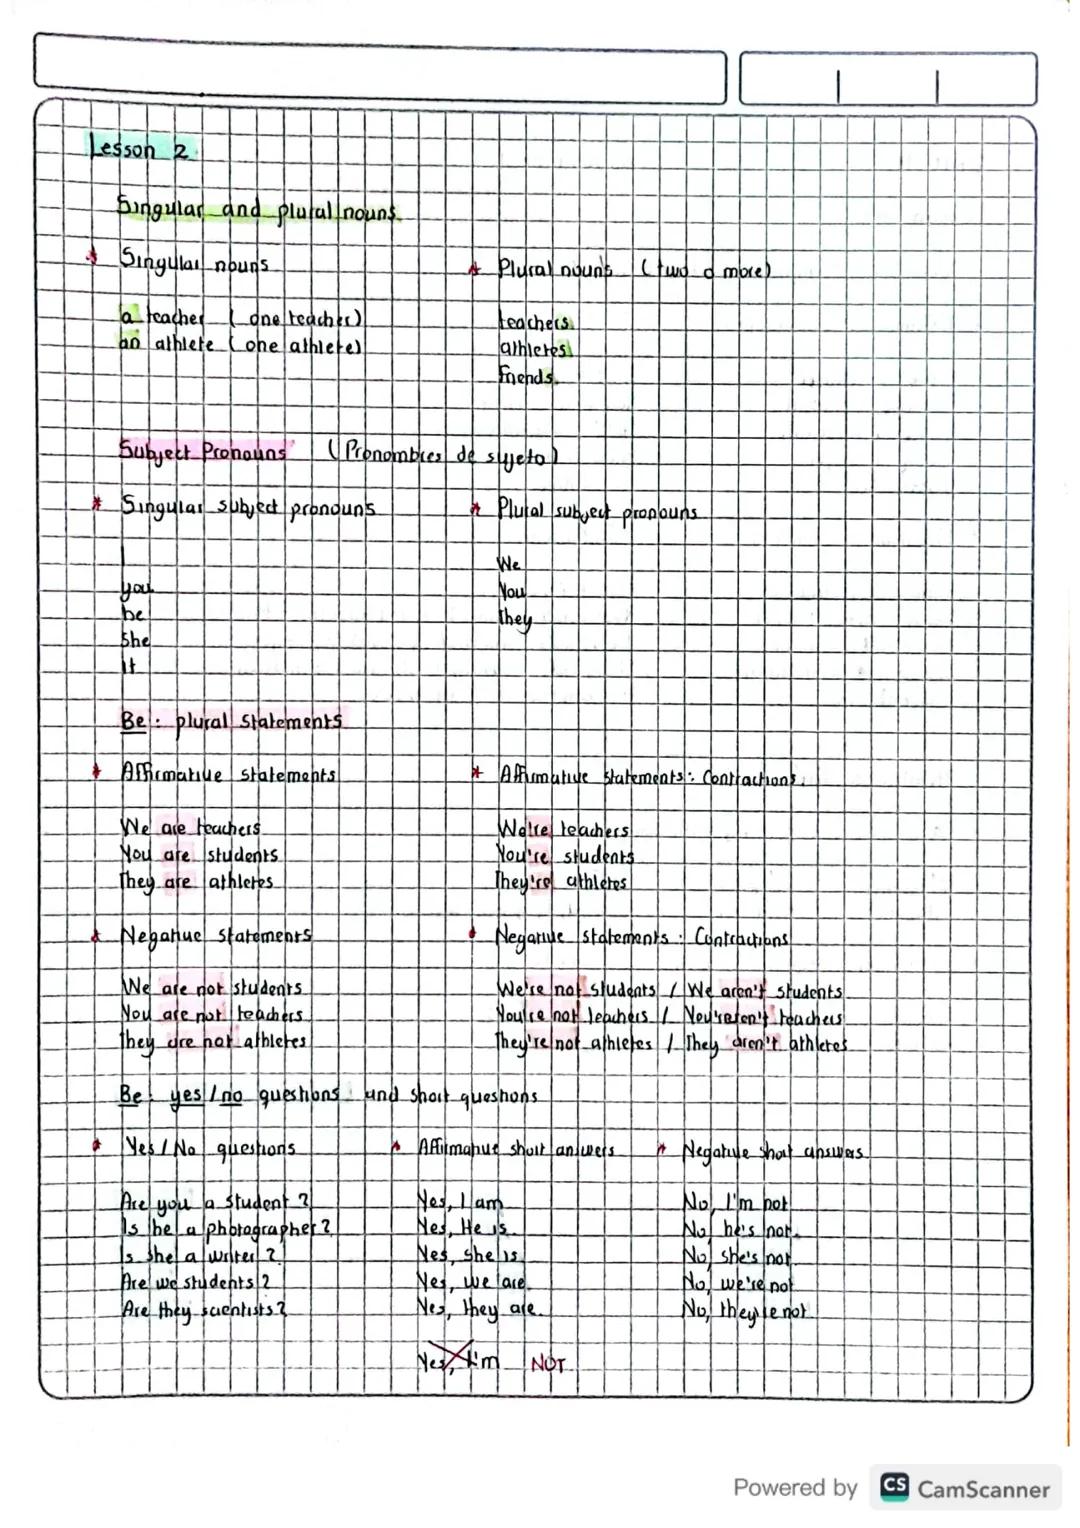 Lesson 2
Singular and plural nouns
* Singular nouns
* Plural nouns (two o more)
a teacher (one teacher)
an athlete (one athlete)
teachers
athletes
friends
Subject Pronouns (Pronombres de sujeto)
* Singular subject pronouns
* Plural subject pronouns
I
you
he
she
It
We
You
They
Be: plural statements
* Affirmative statements
* Affirmative statements: Contractions.
We are teachers
You are students
They are athletes
We're teachers
You're students
They're athletes
* Negative statements
* Negative statements: Contractions
We are not students
You are not teachers
They are not athletes
We're not students / We aren't students
You're not teachers / You aren't teachers
They're not athletes / They aren't athletes
Be: yes/no questions and short questions
* Yes/No questions
* Affirmative short answers
* Negative short answers
Are you a student?
Is he a photographer?
Is she a writer?
Are we students?
Are they scientists?
Yes, I am
Yes, He is
Yes, she is
Yes, we are
Yes, they are
Yes, I'm NOT
No, I'm not
No, he's not.
No, she's not
No, we're not
No, they're not
Powered by CS CamScanner